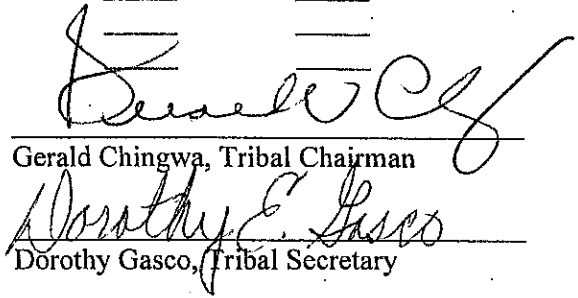 Gerald V Ch
Gerald Chingwa, Tribal Chairman
Dorothy E. Gasco
Dorothy Gasco, Tribal Secretary